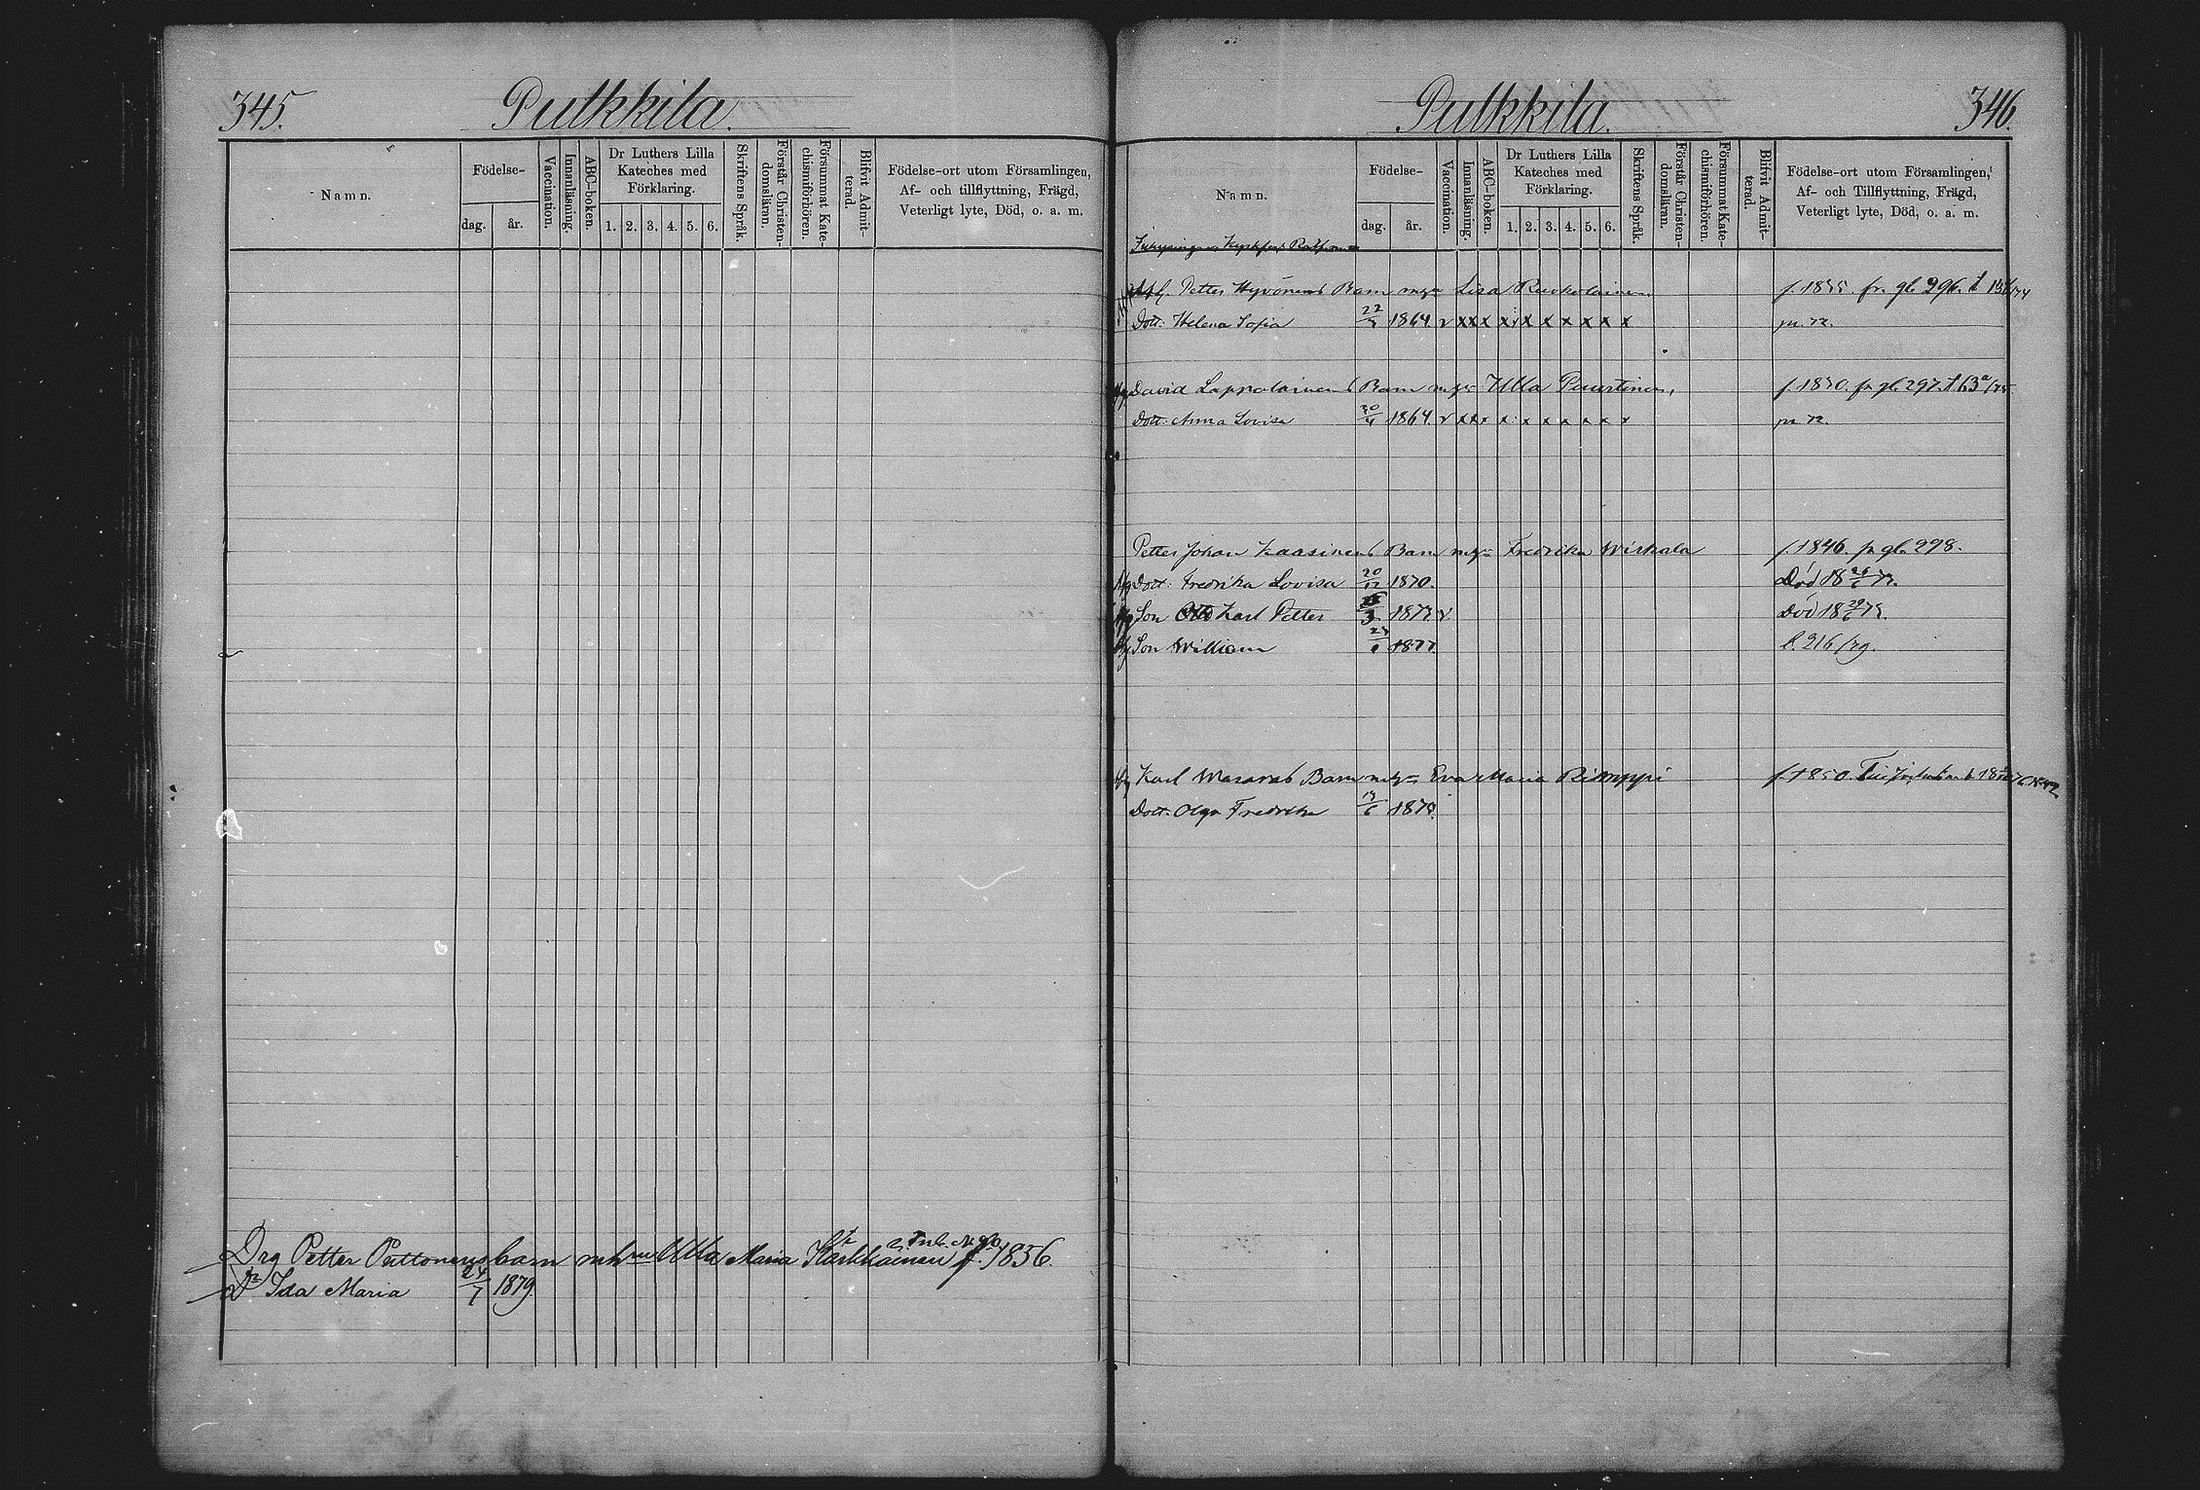 345.
Putkkila.
Namn.
Födelse-
dag.
år.
Vaccination.
Innanläsning.
ABC-boken.
Dr Luthers Lilla
Kateches med
Förklaring.
1. 2. 3. 4. 5. 6.
Skriftens Språk.
Förstår Christen-
domsläran.
Försummat Kate-
chismiförhören.
Blifvit Admit-
terad.
Födelse-ort utom Församlingen,
Af- och tillflyttning, Frägd,
Veterligt lyte, Död, o. a. m.
Drg Petter Puttonens barn m Ulla Maria Karhkainen f. 1856.
Dr Ida Maria 24/7 1879.
Putkkila.
346.
Namn.
Födelse-
dag.
år.
Vaccination.
Innanläsning.
ABC-boken.
Dr Luthers Lilla
Kateches med
Förklaring.
1. 2. 3. 4. 5. 6.
Skriftens Språk.
Förstår Christen-
domsläran.
Försummat Kate-
chismiförhören.
Blifvit Admit-
terad.
Födelse-ort utom Församlingen,
Af- och Tillflyttning, Frägd,
Veterligt lyte, Död, o. a. m.
Petter Hyvönens Barn Lisa Ruokolainen. f. 1835. fr. gl. 296.
Dott. Helena Sofia 22 1864 v x x x x x x x x x x x
David Lappalainens Barn Ulla Puurtinen, f. 1830. fr gl. 297.
Dott. Anna Lovisa 30/4 1864. v x x x x x x x x x x
Petter Johan Kaasinens Barn Fredrika Wirkala f. 1846. fr gl. 298.
Dott. Fredrika Lovisa 20/12 1870. Död 18
Son Karl Petter 1873 v Död 18
Son William 1877. P. 216/79.
Karl Barn Eva Maria Rimppi f. 1850.
Dott. Olga Fredrika 19/6 1878.